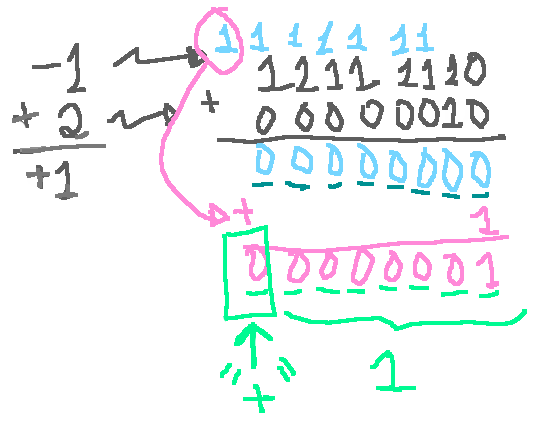 1 1 1 1 1 1 1
-1 1111 1110
+ 2 + 0000 0010
+1 0000 0000
+ 1
0 0 0 0 0 0 0 1
+ 1